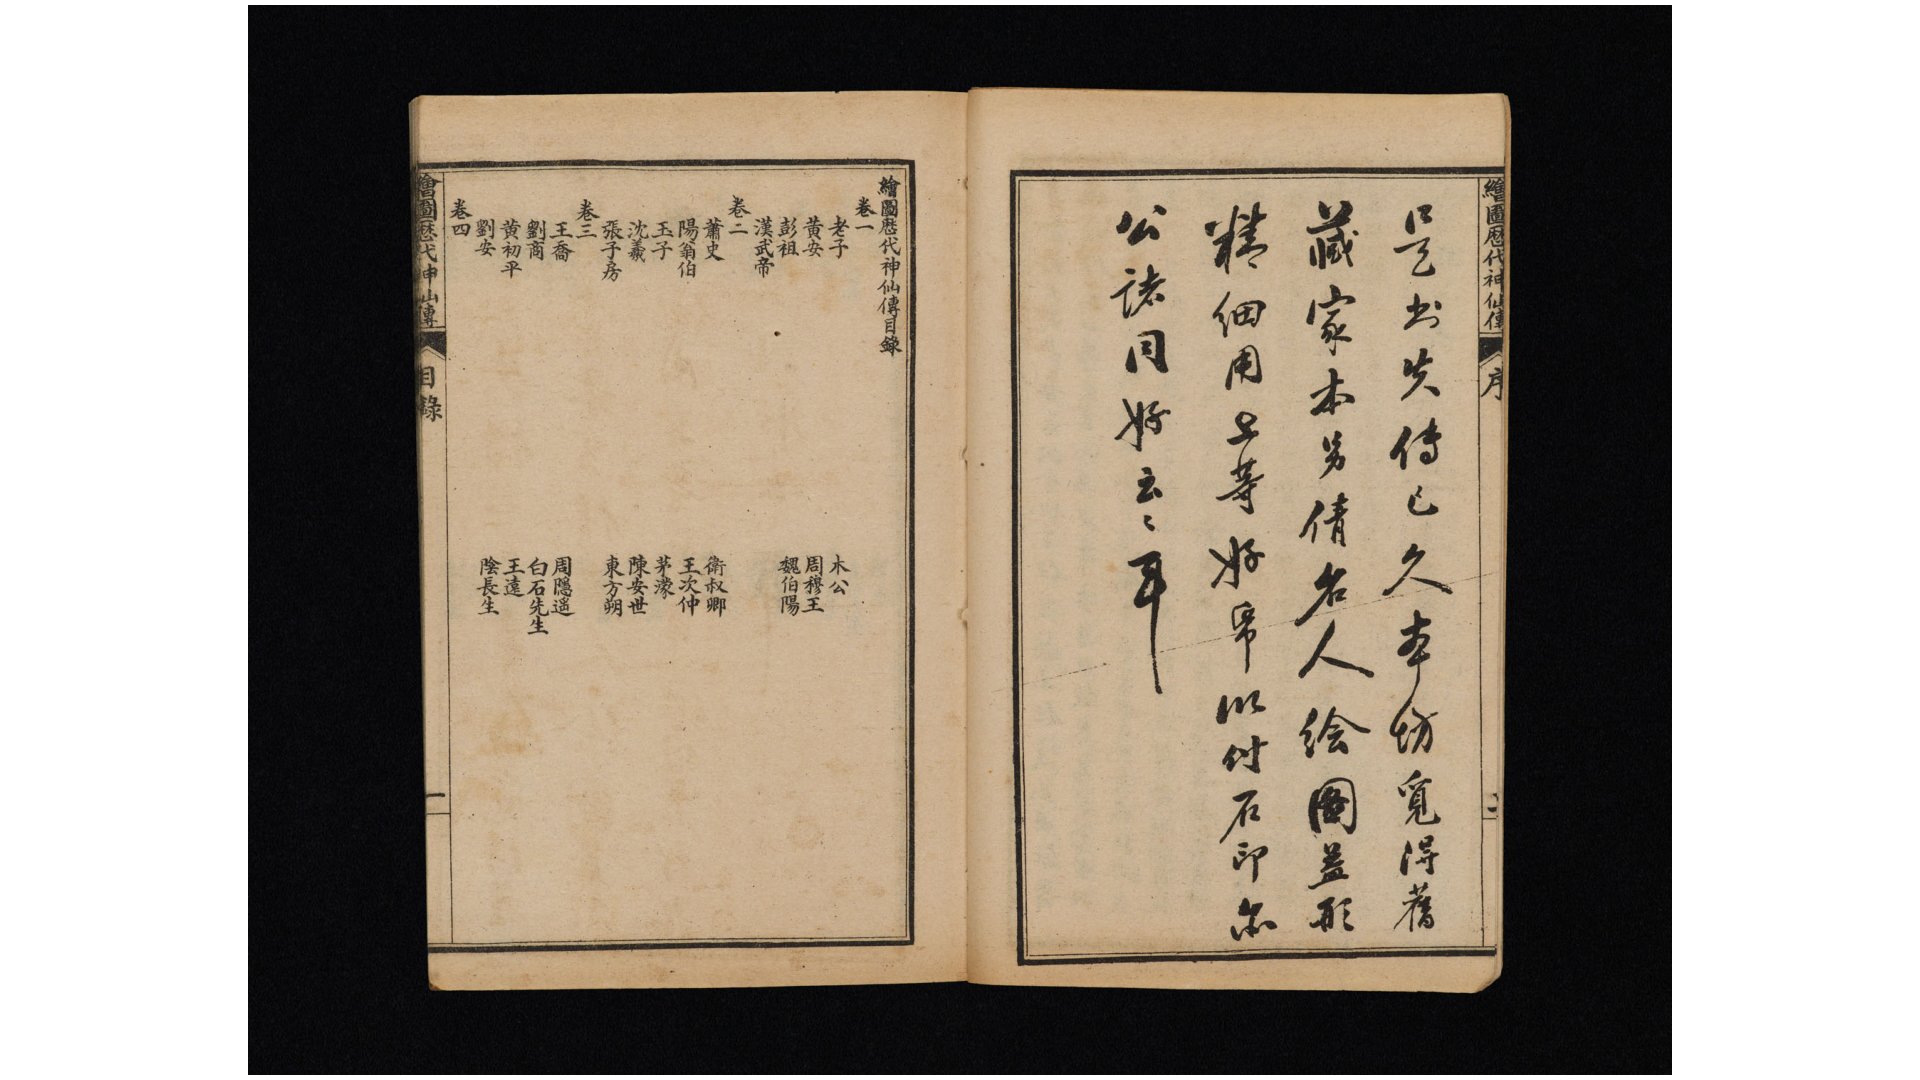 繪圖歷代神仙傳
序
二
是書失傳已久本坊覓得舊
藏家本另倩名人繪圖益形
精細用上等好帋以付石印公
公諸同好云云耳
繪圖歷代神仙傳目錄
卷一
老子
木公
黃安
周穆王
彭祖
魏伯陽
漢武帝
卷二
蕭史
衛叔卿
陽翁伯
王次仲
玉子
茅濛
沈羲
陳安世
張子房
東方朔
卷三
王喬
周隱遥
劉商
白石先生
黃初平
王遠
劉安
陰長生
卷四
繪圖歷代神仙傳
目錄
一